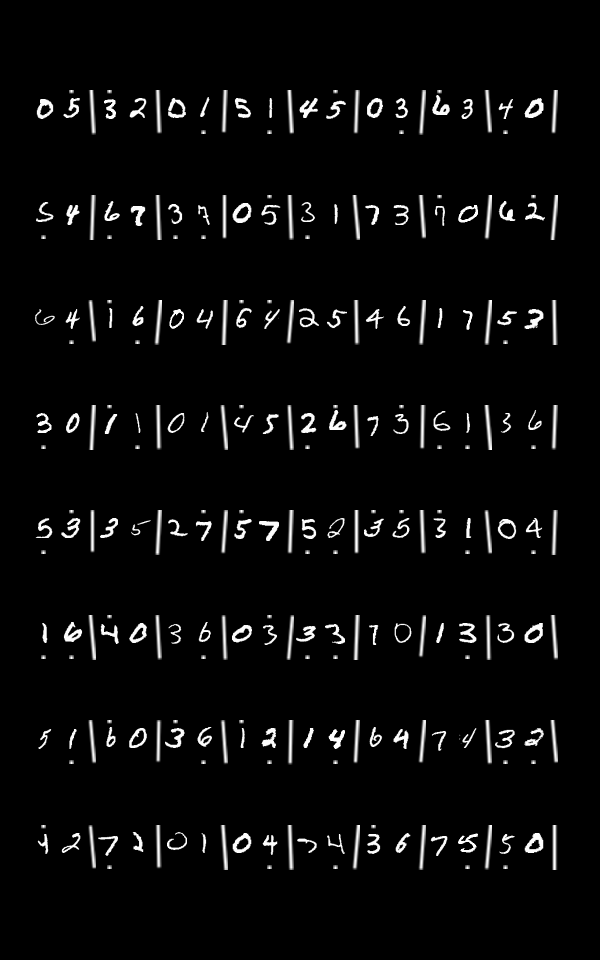 0 5 | 3 2 | 0 1 | 5 1 | 4 5 | 0 3 | 6 3 | 4 0 |
5 4 | 6 7 | 3 7 | 0 5 | 3 1 | 7 3 | 7 0 | 6 2 |
6 4 | 1 6 | 0 4 | 6 4 | 2 5 | 4 6 | 1 7 | 5 3 |
3 0 | 1 1 | 0 1 | 4 5 | 2 6 | 7 3 | 6 1 | 3 6 |
5 3 | 3 5 | 2 7 | 5 7 | 5 2 | 3 5 | 3 1 | 0 4 |
1 6 | 4 0 | 3 6 | 0 3 | 3 3 | 7 0 | 1 3 | 3 0 |
5 1 | 6 0 | 3 6 | 1 2 | 1 4 | 6 4 | 7 4 | 3 2 |
4 2 | 7 2 | 0 1 | 0 4 | 7 4 | 3 6 | 7 5 | 5 0 |